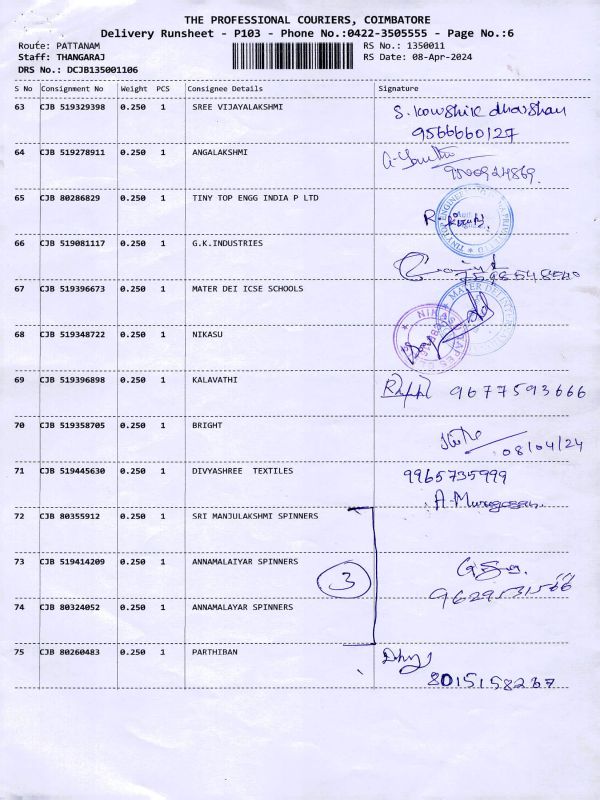 THE PROFESSIONAL COURIERS, COIMBATORE
Delivery Runsheet - P103 - Phone No.:0422-3505555 - Page No.:6
Route: PATTANAM RS No.: 1350011
Staff: THANGARAJ RS Date: 08-Apr-2024
DRS No.: DCJB135001106
S No Consignment No Weight PCS Consignee Details Signature
63 CJB 519329398 0.250 1 SREE VIJAYALAKSHMI S. Kowshik dharshan
9566660127
64 CJB 519278911 0.250 1 ANGALAKSHMI
65 CJB 80286829 0.250 1 TINY TOP ENGG INDIA P LTD
66 CJB 519081117 0.250 1 G.K.INDUSTRIES
67 CJB 519396673 0.250 1 MATER DEI ICSE SCHOOLS
68 CJB 519348722 0.250 1 NIKASU
69 CJB 519396898 0.250 1 KALAVATHI 9677593666
70 CJB 519358705 0.250 1 BRIGHT
08/04/24
71 CJB 519445630 0.250 1 DIVYASHREE TEXTILES 9965735999
A. Murugesan
72 CJB 80355912 0.250 1 SRI MANJULAKSHMI SPINNERS
73 CJB 519414209 0.250 1 ANNAMALAIYAR SPINNERS
3
74 CJB 80324052 0.250 1 ANNAMALAYAR SPINNERS
75 CJB 80260483 0.250 1 PARTHIBAN
8015158267